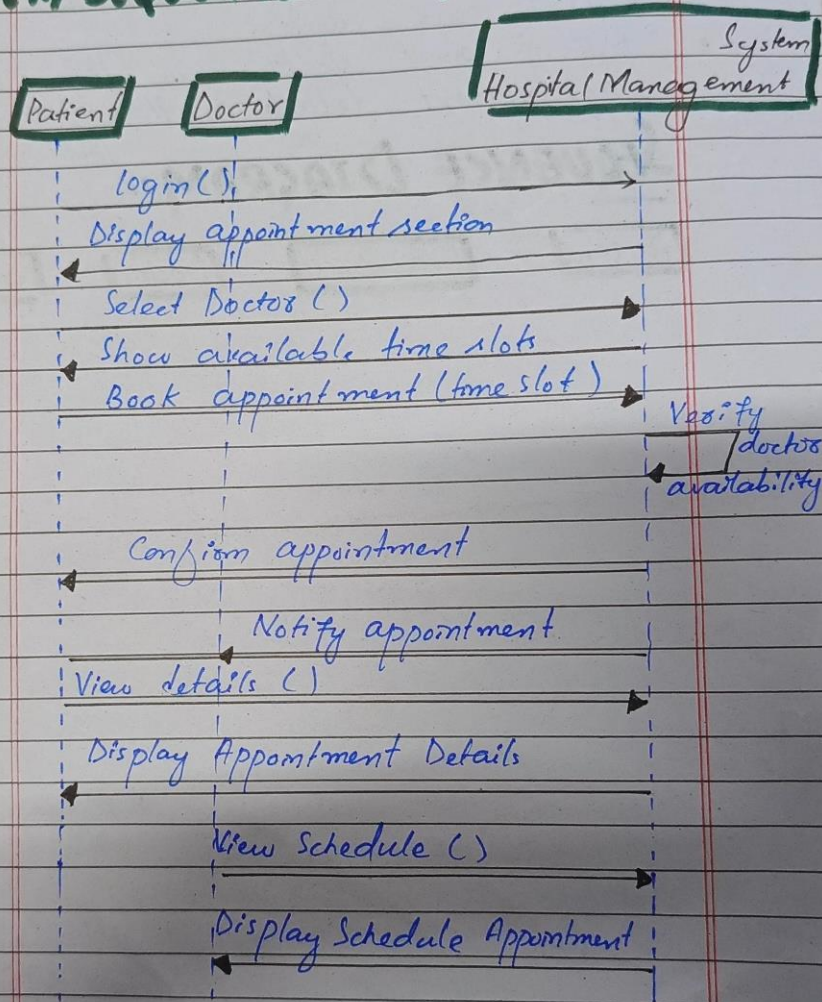 System
Hospital Management
Patient
Doctor
login()
Display appointment section
Select Doctor ()
Show available time slots
Book appointment (time slot)
Verify
doctor
availability
Confirm appointment
Notify appointment
View details ()
Display Appointment Details
View Schedule ()
Display Schedule Appointment